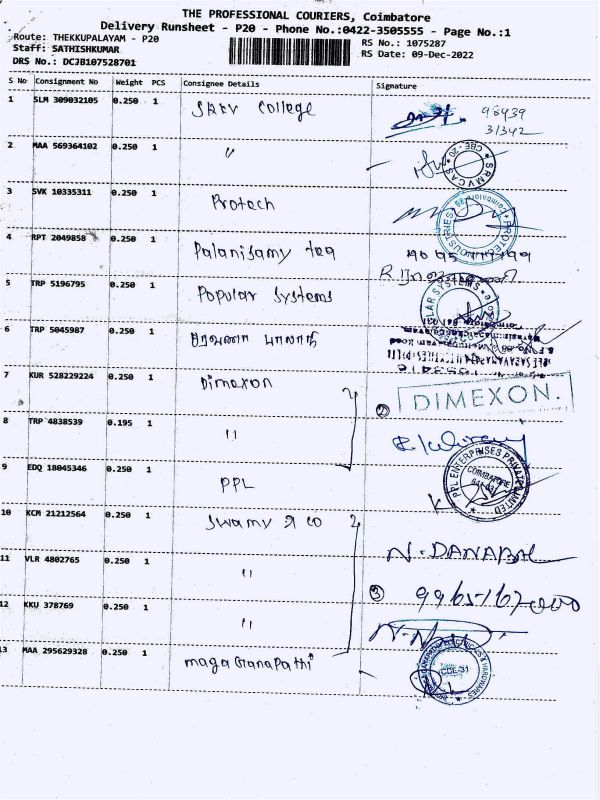 THE PROFESSIONAL COURIERS, Coimbatore
Delivery Runsheet - P20 - Phone No.:0422-3505555 - Page No.:1
Route: THEKKUPALAYAM - P20
RS No.: 1075287
Staff: SATHISHKUMAR
RS Date: 09-Dec-2022
DRS No.: DCJB107528701
S No Consignment No Weight PCS Consignee Details Signature
1 SLM 309032105 0.250 1 College 98439
31342
2 MAA 569364102 0.250 1 〃 CBE-20 SRMVCAS
3 SVK 10335311 0.250 1 Protech
4 RPT 2049858 0.250 1 Palanisamy tea
5 TRP 5196795 0.250 1 Popular Systems
6 TRP 5045987 0.250 1 சரவணா பாலாஜி
7 KUR 528229224 0.250 1 Dimexon DIMEXON.
8 TRP 4838539 0.195 1 〃
9 EDQ 18045346 0.250 1 PPL PPL ENTERPRISES PRIVATE LIMITED COIMBATORE
10 KCM 21212564 0.250 1 Swamy & co N. DANABAL
11 VLR 4802765 0.250 1 〃
12 KKU 378769 0.250 1 〃
13 MAA 295629328 0.250 1 magaGanapathi